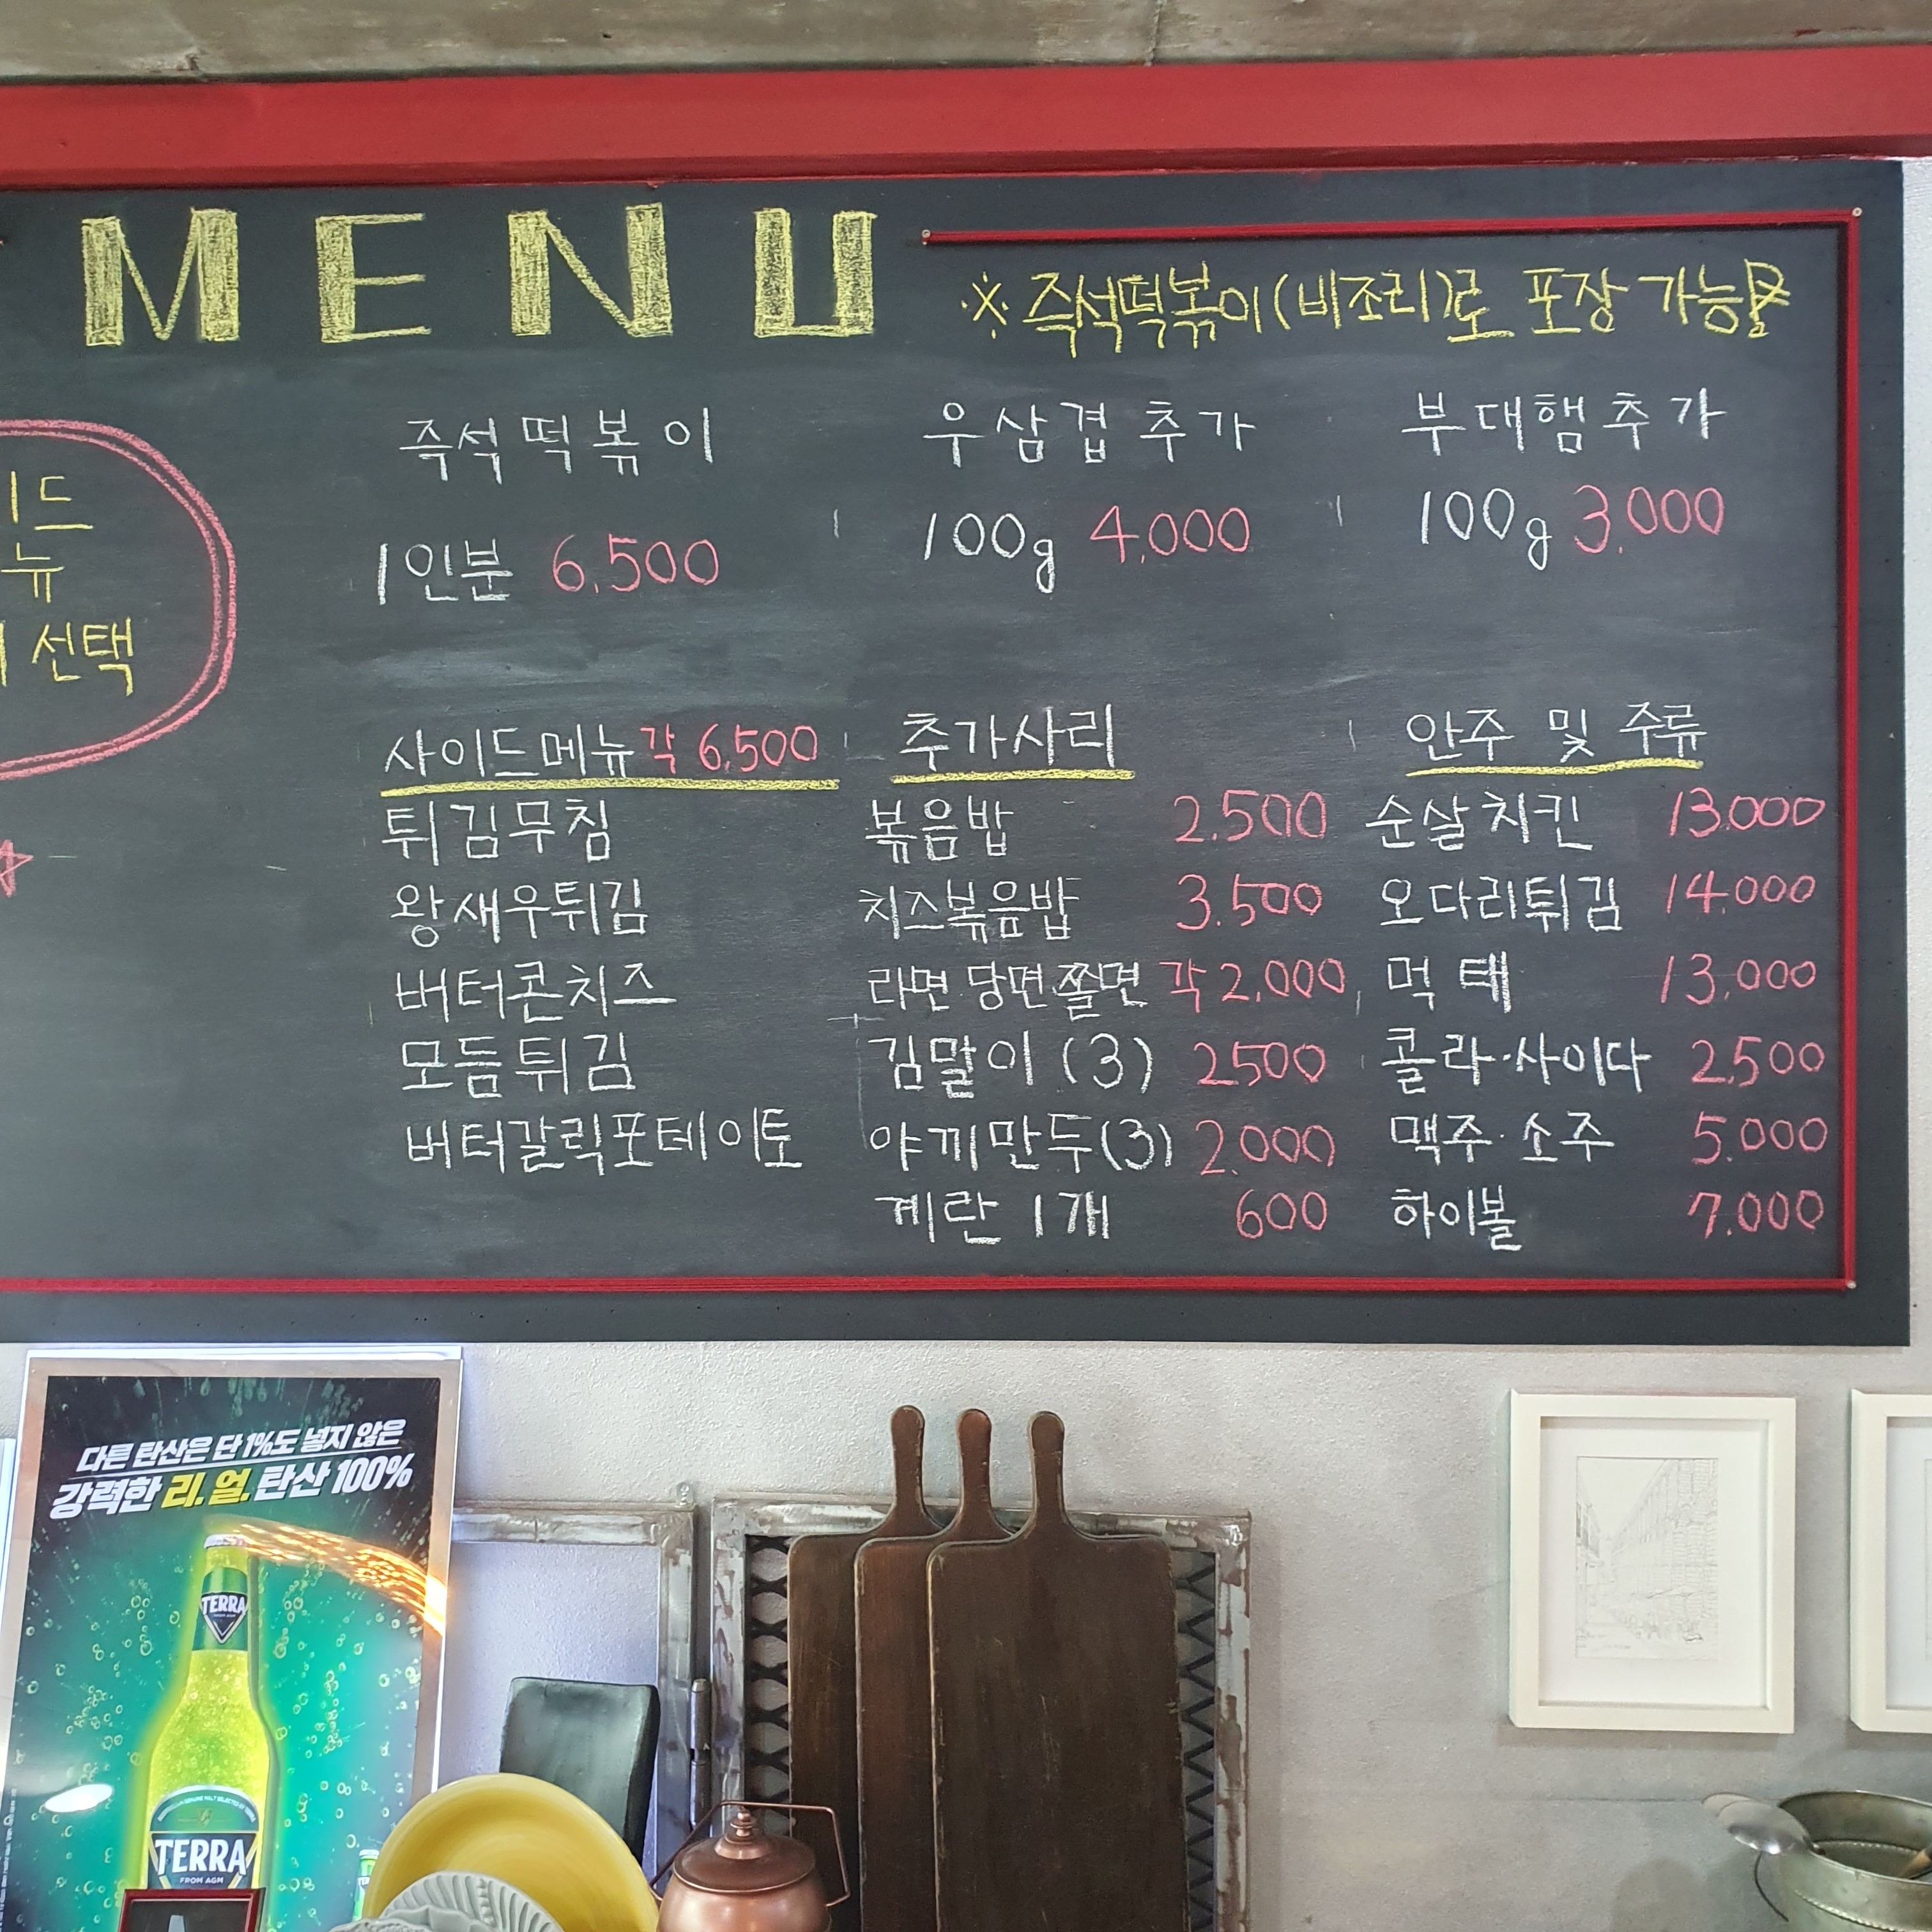 MENU
※ 즉석떡볶이(비조리)로 포장 가능
이드
뉴
선택
즉석떡볶이
1인분 6,500
우삼겹추가
100g 4,000
부대햄추가
100g 3,000
사이드메뉴 각 6,500
튀김무침
왕새우튀김
버터콘치즈
모듬튀김
버터갈릭포테이토
추가사리
볶음밥 2,500
치즈볶음밥 3,500
라면.당면.쫄면 각 2,000
김말이 (3) 2500
야끼만두(3) 2,000
계란 1개 600
안주 및 주류
순살치킨 13,000
오다리튀김 14,000
먹태 13,000
콜라·사이다 2,500
맥주·소주 5,000
하이볼 7,000
다른 탄산은 단 1%도 넣지 않은
강력한 리.얼.탄산 100%
TERRA
TERRA
FROM AGM